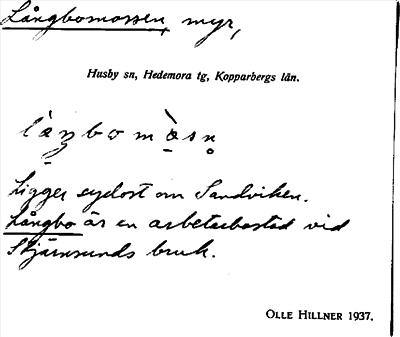 Långbomossen, myr,
Husby sn, Hedemora tg, Kopparbergs län.
Ligger sydost om Sandviken.
Långbo är en arbetarbostad vid
Stjärnsunds bruk.
OLLE HILLNER 1937.